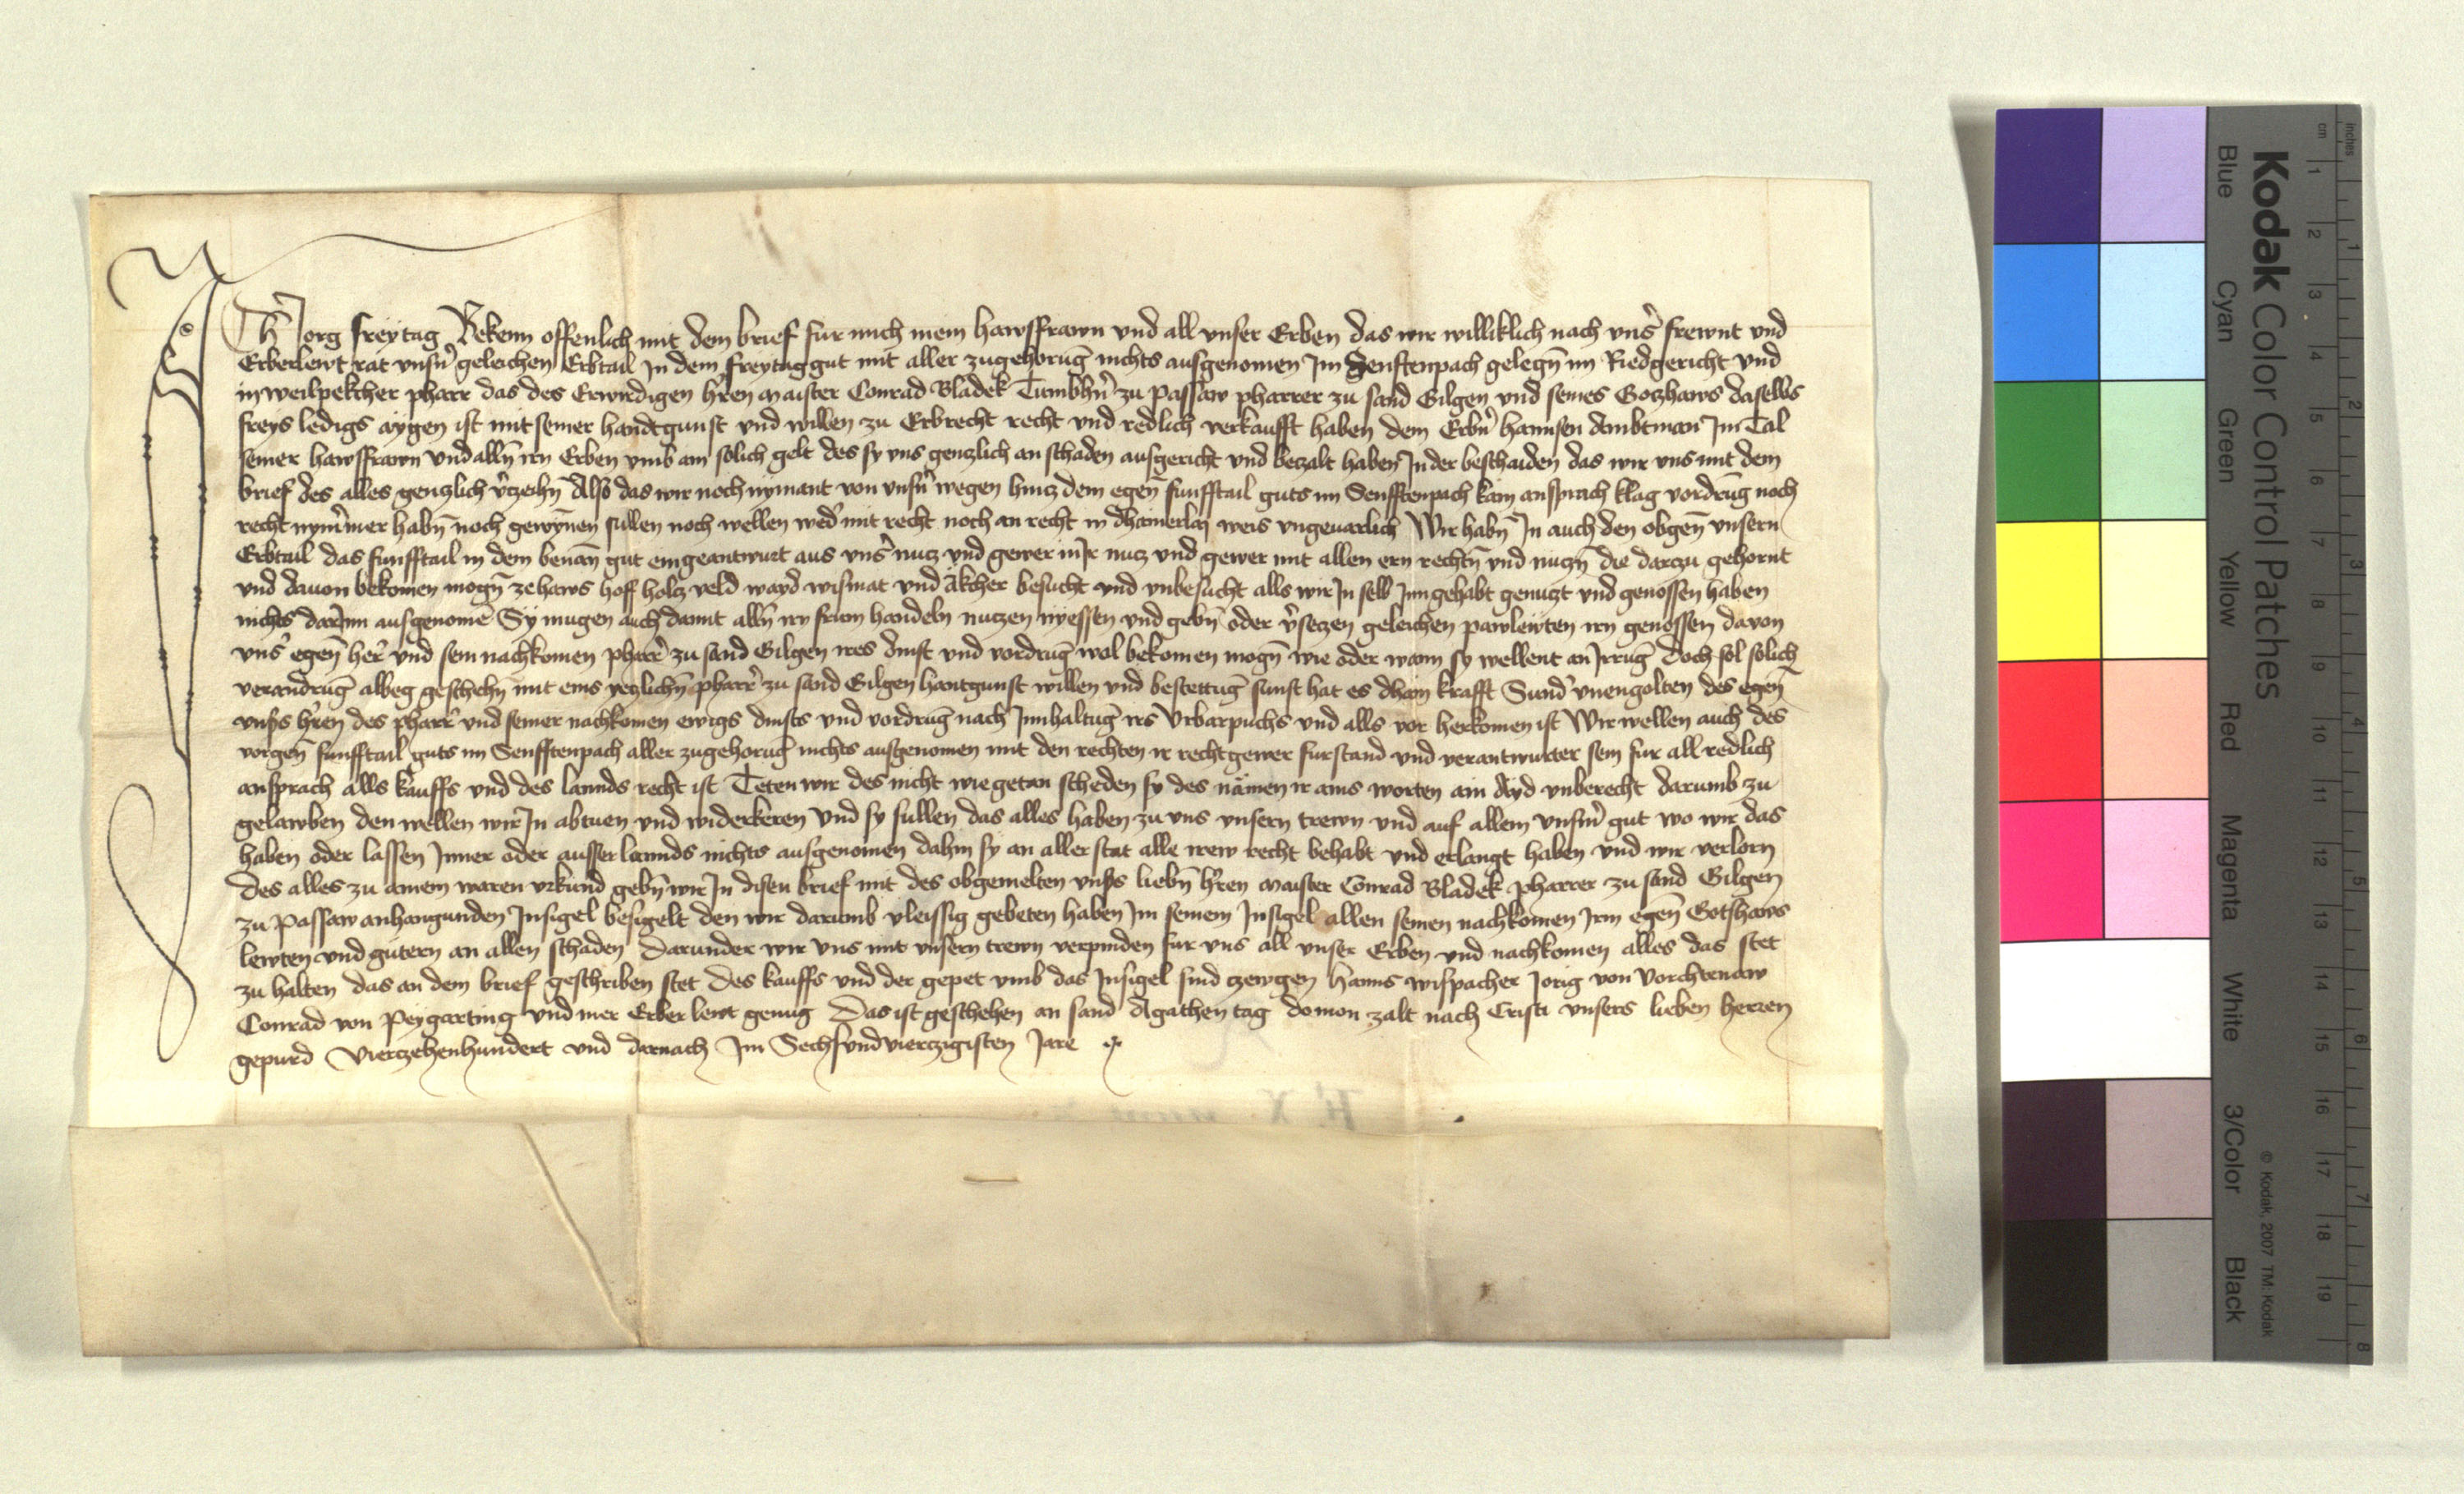 Ich Jorg freytag Bekenn offenlich mit dem brief fur mich mein hawsfrawn vnd all vnser Erben das wir williklich nach vnsr̄ frewnt vnd
Erberlewt rat vnsn̄ geleichen Erbtail In dem freytaggut mit aller zugehorūg nichts ausgenomen Im Senftenpach gelegn̄ im Riedgericht vnd
in weilpekcher pharr das des Erwirdigen hr̄en maister Conrad Bladek Tumbhn̄ zu passaw pharrer zu sand Gilgen vnd seines Gotzhaws daselbs
freys ledigs aygen ist mit seiner handtgunst vnd willen zu Erbrecht recht vnd redlich verkaufft haben dem Erbn̄ hannsen Ambtman Im Tal
seiner hawsfrawn vnd alln̄ irn Erben vmb ain solich gelt des sy vns genzlich an schaden ausgericht vnd betzalt haben In der beschaiden das wir vns mit dem
brief des alles genczlich v̄czeihn̄ Also das wir noch nymant von vnsn̄ wegen hincz dem egen̄ funfftail guts im Senfftenpach kain ansprach klag vordrūg noch
recht nymermer habn̄ noch gewynnen sullen noch wellen wed̄ mit recht noch an recht in dhainerlay weis vngeuarlich Wir habn̄ In auch den obgen̄ vnsern
Erbtail das funfftail in dem benan̄ gut eingeantwurt aus vnsr̄ nucz vnd gewer in Ir nucz vnd gewer mit allen ern rechtn̄ vnd nuczn̄ die darczu gehornt
vnd dauon bekomen mogn̄ ze haws hoff holcz veld wayd wismat vnd äkcher besucht vnd vnbesucht alls wir In selb Inn gehabt genuczt vnd genossen haben
nichts darInn ausgenomē Sy mugen auch damit alln̄ irn frum handeln nuczen nyessen vnd gebn̄ oder v̄setzen geleichen pawlewten irn genossen davon
vnsr̄ egen̄ her̄ vnd sein nachkomen pharr̄ zu sand Gilgen ires dinst vnd vordrūg wol bekomen mogn̄ wie oder wann sy wellent an Irrūg Doch sol solich
verandrūg albeg geschehn̄ mit eins yeglichn̄ pharr̄ zu sand Gilgen hantgunst willen vnd bestettūg sunst hat es dhain krafft Sund̄ vnengolten des egen̄
vnsrs hr̄en des pharr̄ vnd seiner nachkomen ewigs dinsts vnd vordrūg nach Innhaltūg irs Vrbarpuchs vnd alls vor herkomen ist Wir wellen auch des
vorgen̄ funfftail guts im Senfftenpach aller zugehorūg nichts ausgenomen mit den rechten ir recht gewer furstand vnd verantwurter sein fur all redlich
ansprach alls kauffs vnd des lannds recht ist Teten wir des nicht wie getan scheden sy des nämen ir ains worten ain Ayd vnberecht darumb zu
gelawben den wellen wir In abtuen vnd widerkeren Vnd sy sullen das alles haben zu vns vnsern trewn vnd auf allem vnsm̄ gut wo wir das
haben oder lassen Inner oder ausser lannds nichts ausgenomen dahin sy an aller stat alle irew recht behabt vnd erlangt haben vnd wir verlorn
Des alles zu ainem waren vrkund gebn̄ wir In disen brief mit des obgemelten vnsrs liebn̄ hr̄en maister Conrad Bladek pharrer zu sand Gilgen
zu Passaw anhangunden Insigel besigelt den wir darumb vleissig gebeten haben Im seinem Insigel allen seinen nachkomen Irm egen̄ Gotshaws
lewten vnd gutern an allen schaden Darunder wir vns mit vnsern trewn verpinden fur vns all vnser Erben vnd nachkomen alles das stet
zu halten das an dem brief geschriben stet Des kauffs vnd der gepet vmb das Insigel sind czewgen hanns wispacher Jorig von Vorchtenaw
Conrad von Peygarting vnd mer Erber lewt genug Das ist geschehen an sand Agathen tag do mon zalt nach Cristi vnsers lieben herren
gepurd Vierczehenhundert vnd darnach Im Sechsvndvierczigisten Jare
Kodak Color Control Patches
Blue Cyan Green Yellow Red Magenta White 3/Color Black
© Kodak, 2007 TM: Kodak
Inches 1 2 3 4 5 6 7 8
cm 1 2 3 4 5 6 7 8 9 10 11 12 13 14 15 16 17 18 19